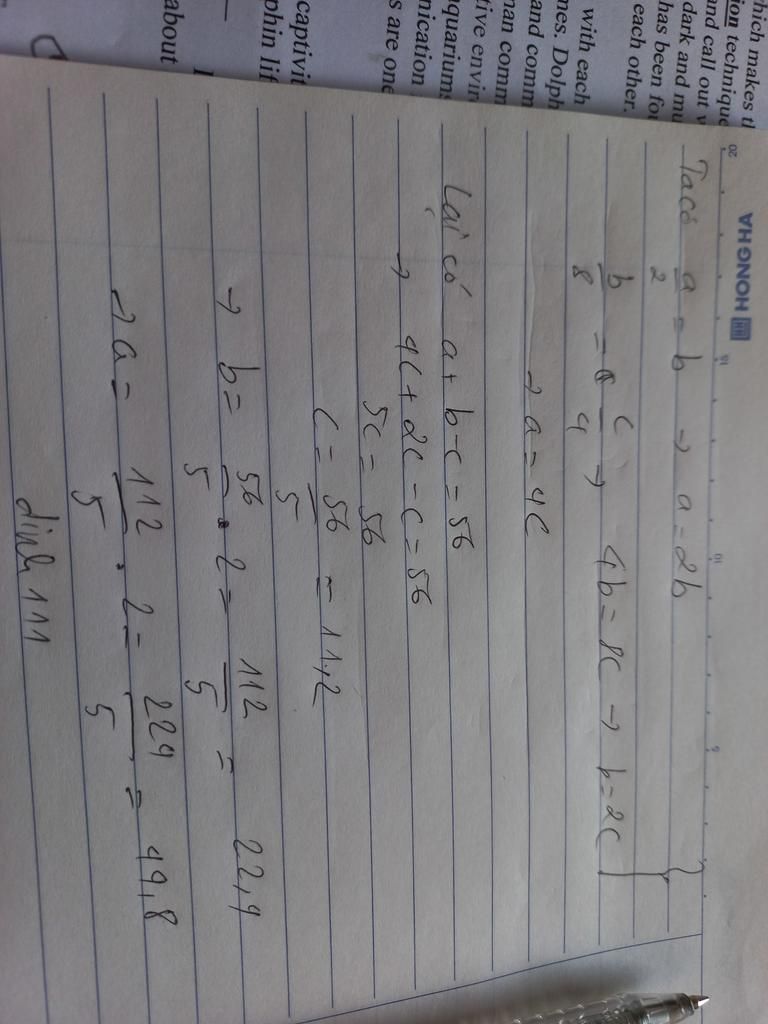 hich makes t
ion technique
and call out
dark and mu
has been fou
each other.
with each
nes. Dolph
and comm
nan comm
tive envir
quariums
nication
s are one
captivit
phin lif
about
HONG HA
20
15
10
5
Ta có a/2 = b → a = 2b
b/8 = c/4 → 4b = 8c → b = 2c }
→ a = 4c
Lại có a + b - c = 56
→ 4c + 2c - c = 56
5c = 56
c = 56/5 = 11,2
→ b = 56/5 . 2 = 112/5 = 22,4
→ a = 112/5 . 2 = 224/5 = 44,8
dinh 111